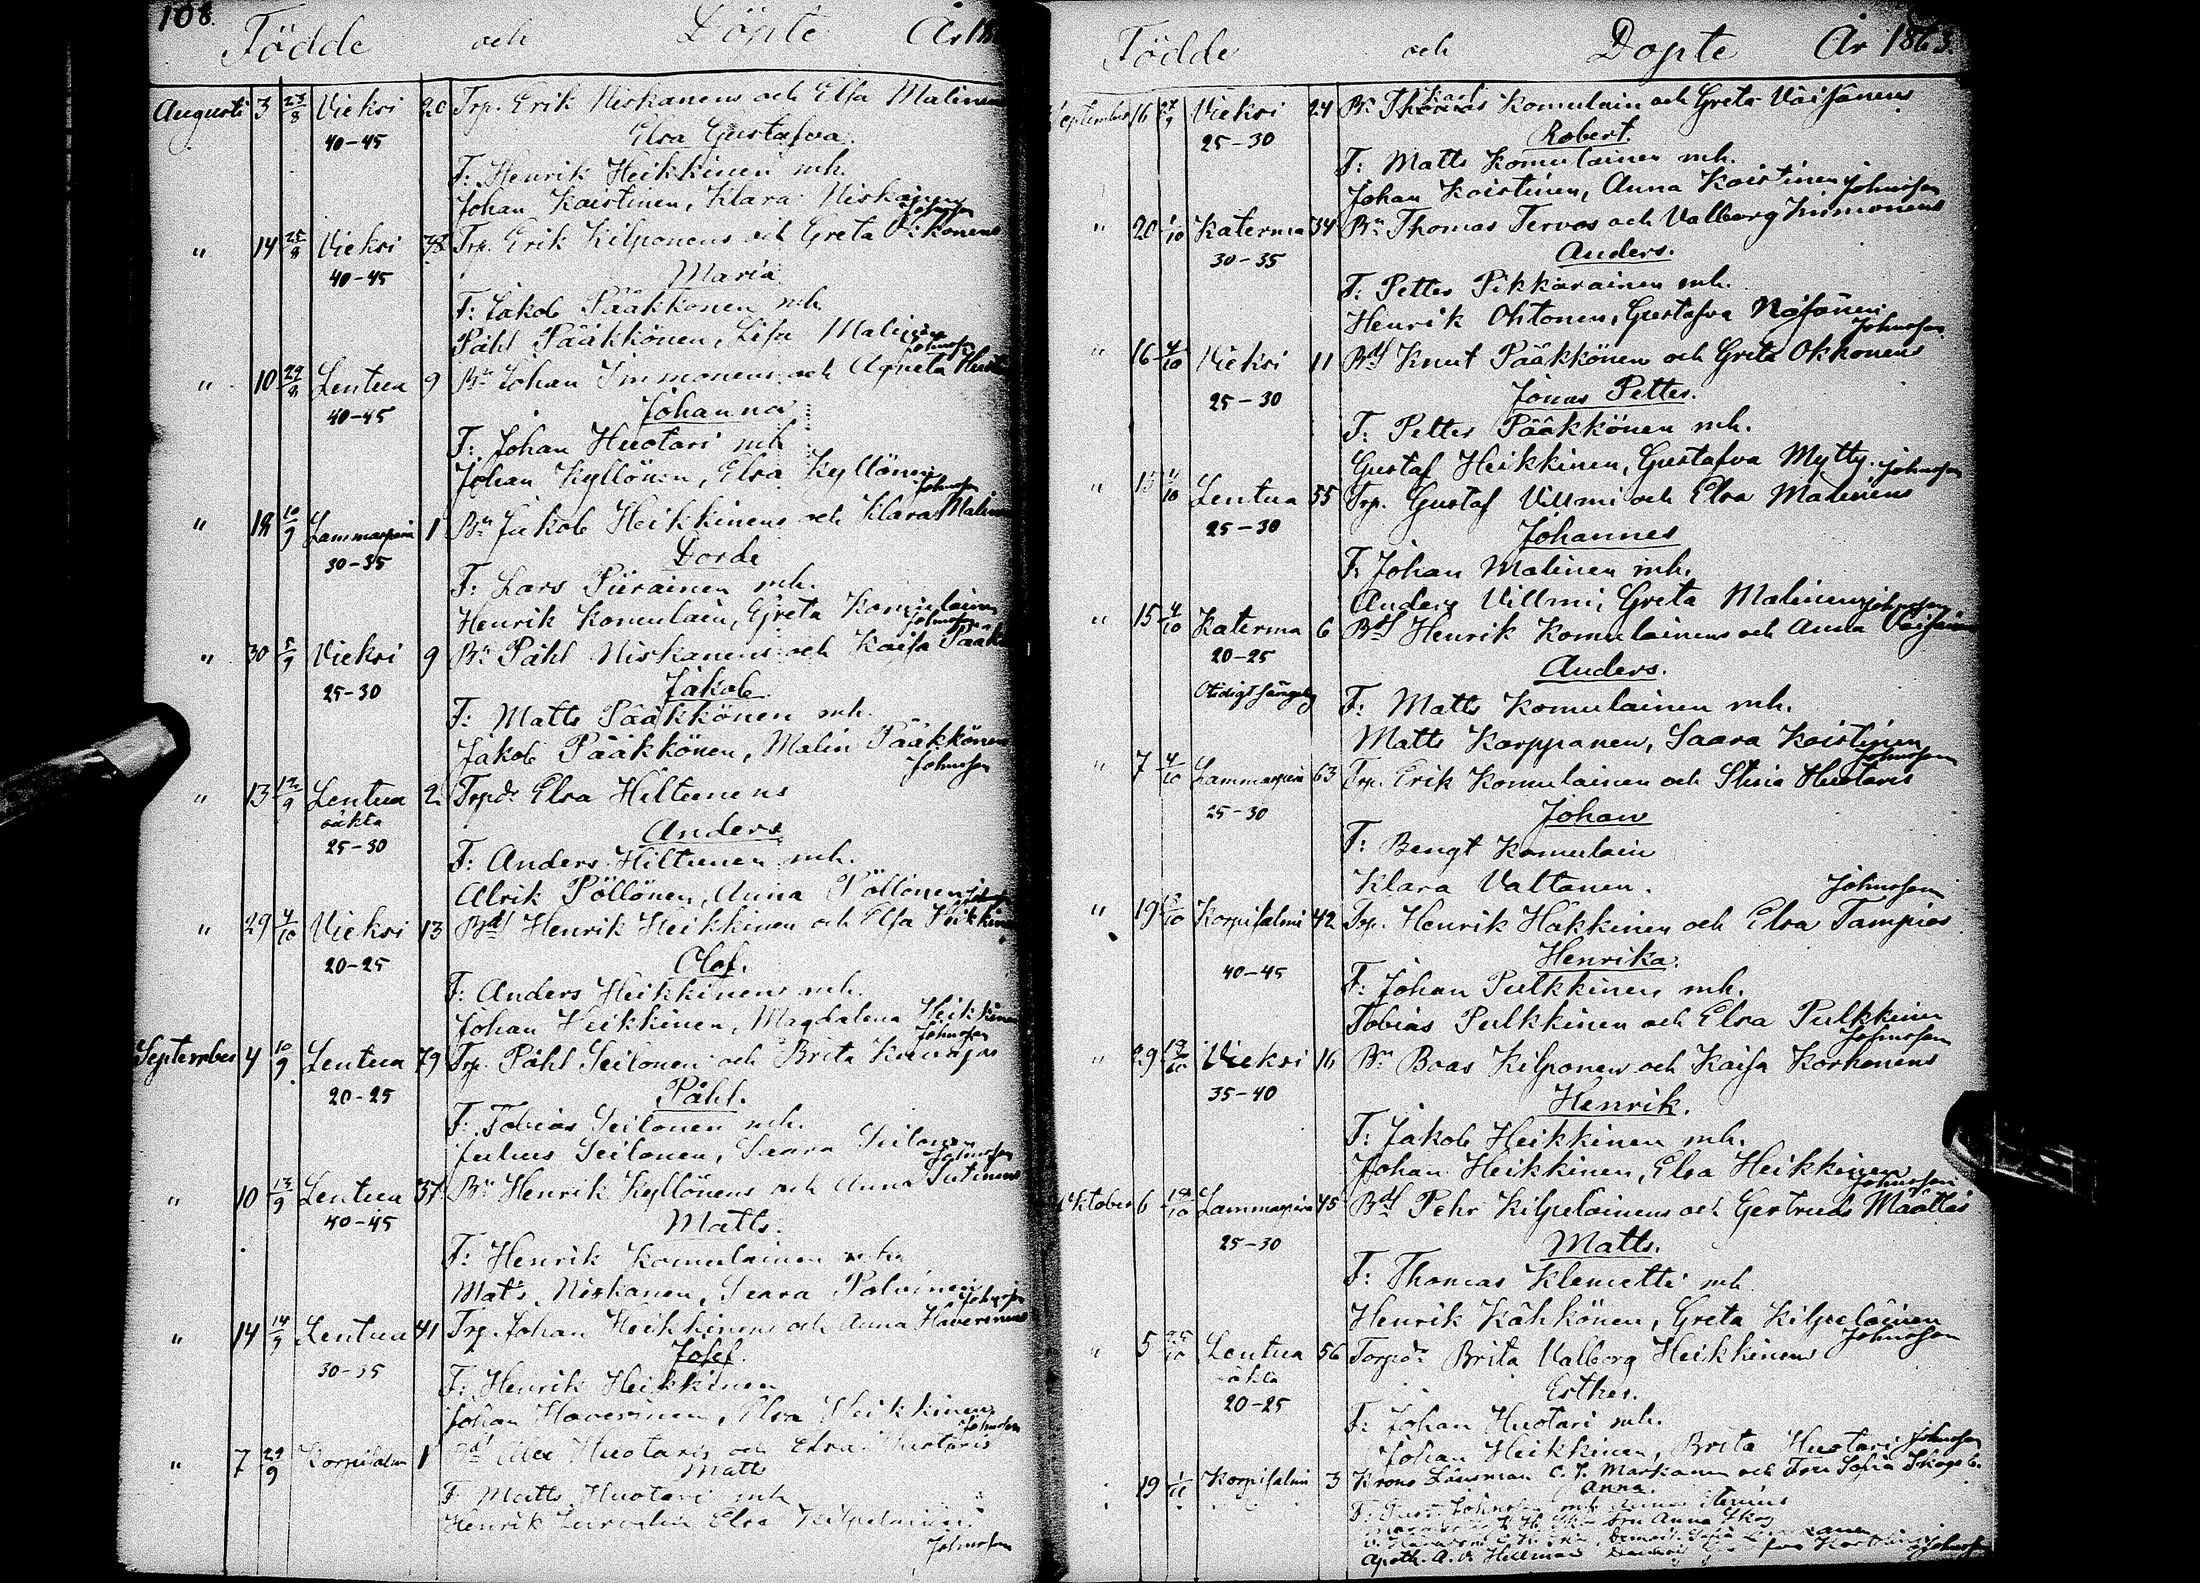 108.
Födde och Döpte År 18
Augusti 3 23/8 Vieksi 20 Trp. Erik Niskanens och Elsa Malinen
40-45 Elsa Gustafva.
F: Henrik Heikkinen mh.
Johan Koistinen, Klara Niskanen
Johnsson
" 14 25/8 Vieksi 38 Trp. Erik Kilponens och Greta Okkonens
40-45 Maria
F: Jakob Pääkkönen mh.
Påhl Pääkkönen, Lisa Malinen
Johnsson
" 10 29/8 Lentua 9 Bn Johan Immonens och Agneta
40-45 Johanna
F: Johan Huotari mh
Johan Kyllönen, Elsa Kyllönen
Johnsson
" 18 10/9 Lammasperä 1 Bn Jakob Heikkinens och Klara Malinen
30-35 Dorde
F: Lars Piirainen mh.
Henrik Komulain, Greta Komulainen
Johnsson
" 30 5/9 Vieksi 9 Bn Påhl Niskanens och Kaisa Pääkk
25-30 Jakob.
F: Matts Pääkkönen mh.
Jakob Pääkkönen, Malin Pääkkönen
Johnsson
" 13 12/9 Lentua 2 Trpdr Elsa Hiltunens
oäkta Anders
25-30
F: Anders Hiltunen mh.
Alrik Pöllönen, Anna Pöllönen
Johnsson
" 29 4/10 Vieksi 13 Bds Henrik Heikkinen och Elsa Heikkinen
20-25 Olof.
F: Anders Heikkinens mh.
Johan Heikkinen, Magdalena Heikkinen
Johnsson
September 4 10/9 Lentua 79 Trp. Påhl Seilonen och Brita
20-25 Påhl.
F: Tobias Seilonen mh.
Julius Seilonen, Saara Seilonen
Johnsson
" 10 13/9 Lentua 37 Bn Henrik Kyllönens och Anna Sutinens
40-45 Matts.
F: Henrik Komulainen mh.
Mats Niskanen, Saara Polvinen
Johnsson
" 14 14/9 Lentua 41 Trp. Johan Heikkinens och Anna Haverinens
30-35 Josef.
F: Henrik Heikkinen
Johan Haverinen, Elsa Heikkinen
Johnsson
" 7 29/9 Korpisalmi 1 Huotaris och Elsa Huotaris
Matts
F: Matts Huotari mh
Henrik Elsa Kilpelainen
Johnsson
Födde och Döpte År 1863.
September 16 27/9 Vieksi 24 Bn Thomas Karl Komulain och Greta Väisänens
25-30 Robert.
F: Matts Komulainen mh.
Johan Koistinen, Anna Koistinen Johnsson
" 20 1/10 Katerma 34 Bn Thomas Tervos och Valborg Immonens
30-35 Anders.
F: Petter Pikkarainen mh.
Henrik Ohtonen, Gustafva Näsänen
Johnsson
" 16 4/10 Vieksi 11 Bds Knut Pääkkönen och Greta Okkonens
25-30 Jonas Petter.
F: Petter Pääkkönen mh.
Gustaf Heikkinen, Gustafva Mytty. Johnsson
" 15 4/10 Lentua 55 Trp. Gustaf Villmi och Elsa Malinens
25-30 Johannes
F: Johan Malinen mh.
Anders Villmi, Greta Malinen Johnsson
" 15 4/10 Katerma 6 Bds Henrik Komulainens och Anna Väisänen
20-25 Anders.
Otidigt sängelag
F: Matts Komulainen mh.
Matts Karppanen, Saara Koistinen
Johnsson
" 7 4/10 Lammasperä 63 Trp. Erik Komulainen och Stina Huotaris
25-30 Johan
F: Bengt Komulain
Klara Valtanen. Johnsson
" 19 /10 Korpisalmi 42 Trp. Henrik Häkkinen och Elsa Tampies
40-45 Henrika.
F: Johan Pulkkinen mh.
Tobias Pulkkinen och Elsa Pulkkinen
Johnsson
" 29 18/10 Vieksi 16 Bn Boas Kilponen och Kaisa Korhonens
35-40 Henrik.
F: Jakob Heikkinen mh.
Johan Heikkinen, Elsa Heikkinen
Johnsson
Oktober 6 18/10 Lammasperä 45 Bds Pehr Kilpeläinens och Gertruds Määttäs
25-30 Matts.
F: Thomas Klemetti mh
Henrik Kähkönen, Greta Kilpeläinen
Johnsson
" 5 25/10 Lentua 56 Torpdr Brita Valborg Heikkinens
oäkta Esther.
20-25
F: Johan Huotari mh.
Johan Heikkinen, Brita Huotari Johnsson
19 1/11 Korpisalmi 3 Krono Länsman C. J. Markanen och Fru Sofia
Anna.
F: Johnsson mh Anna
Fru Anna Skog
Apoth. A. V. Hellman Johnsson